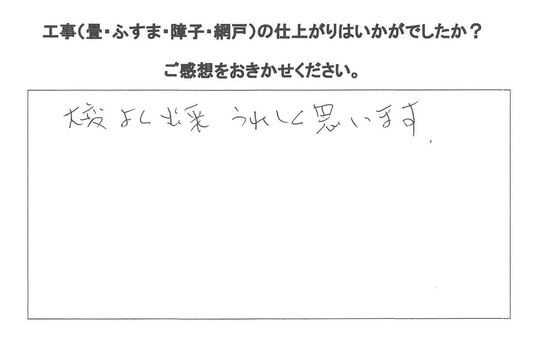 工事(畳・ふすま・障子・網戸)の仕上がりはいかがでしたか?
ご感想をおきかせください。
大変よく出来 うれしく思います.